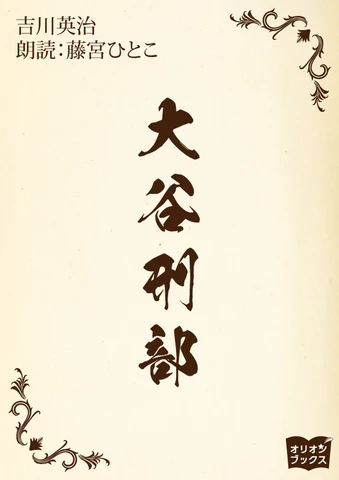 吉川英治
朗読：藤宮ひとこ
大谷刑部
オリオン
ブックス